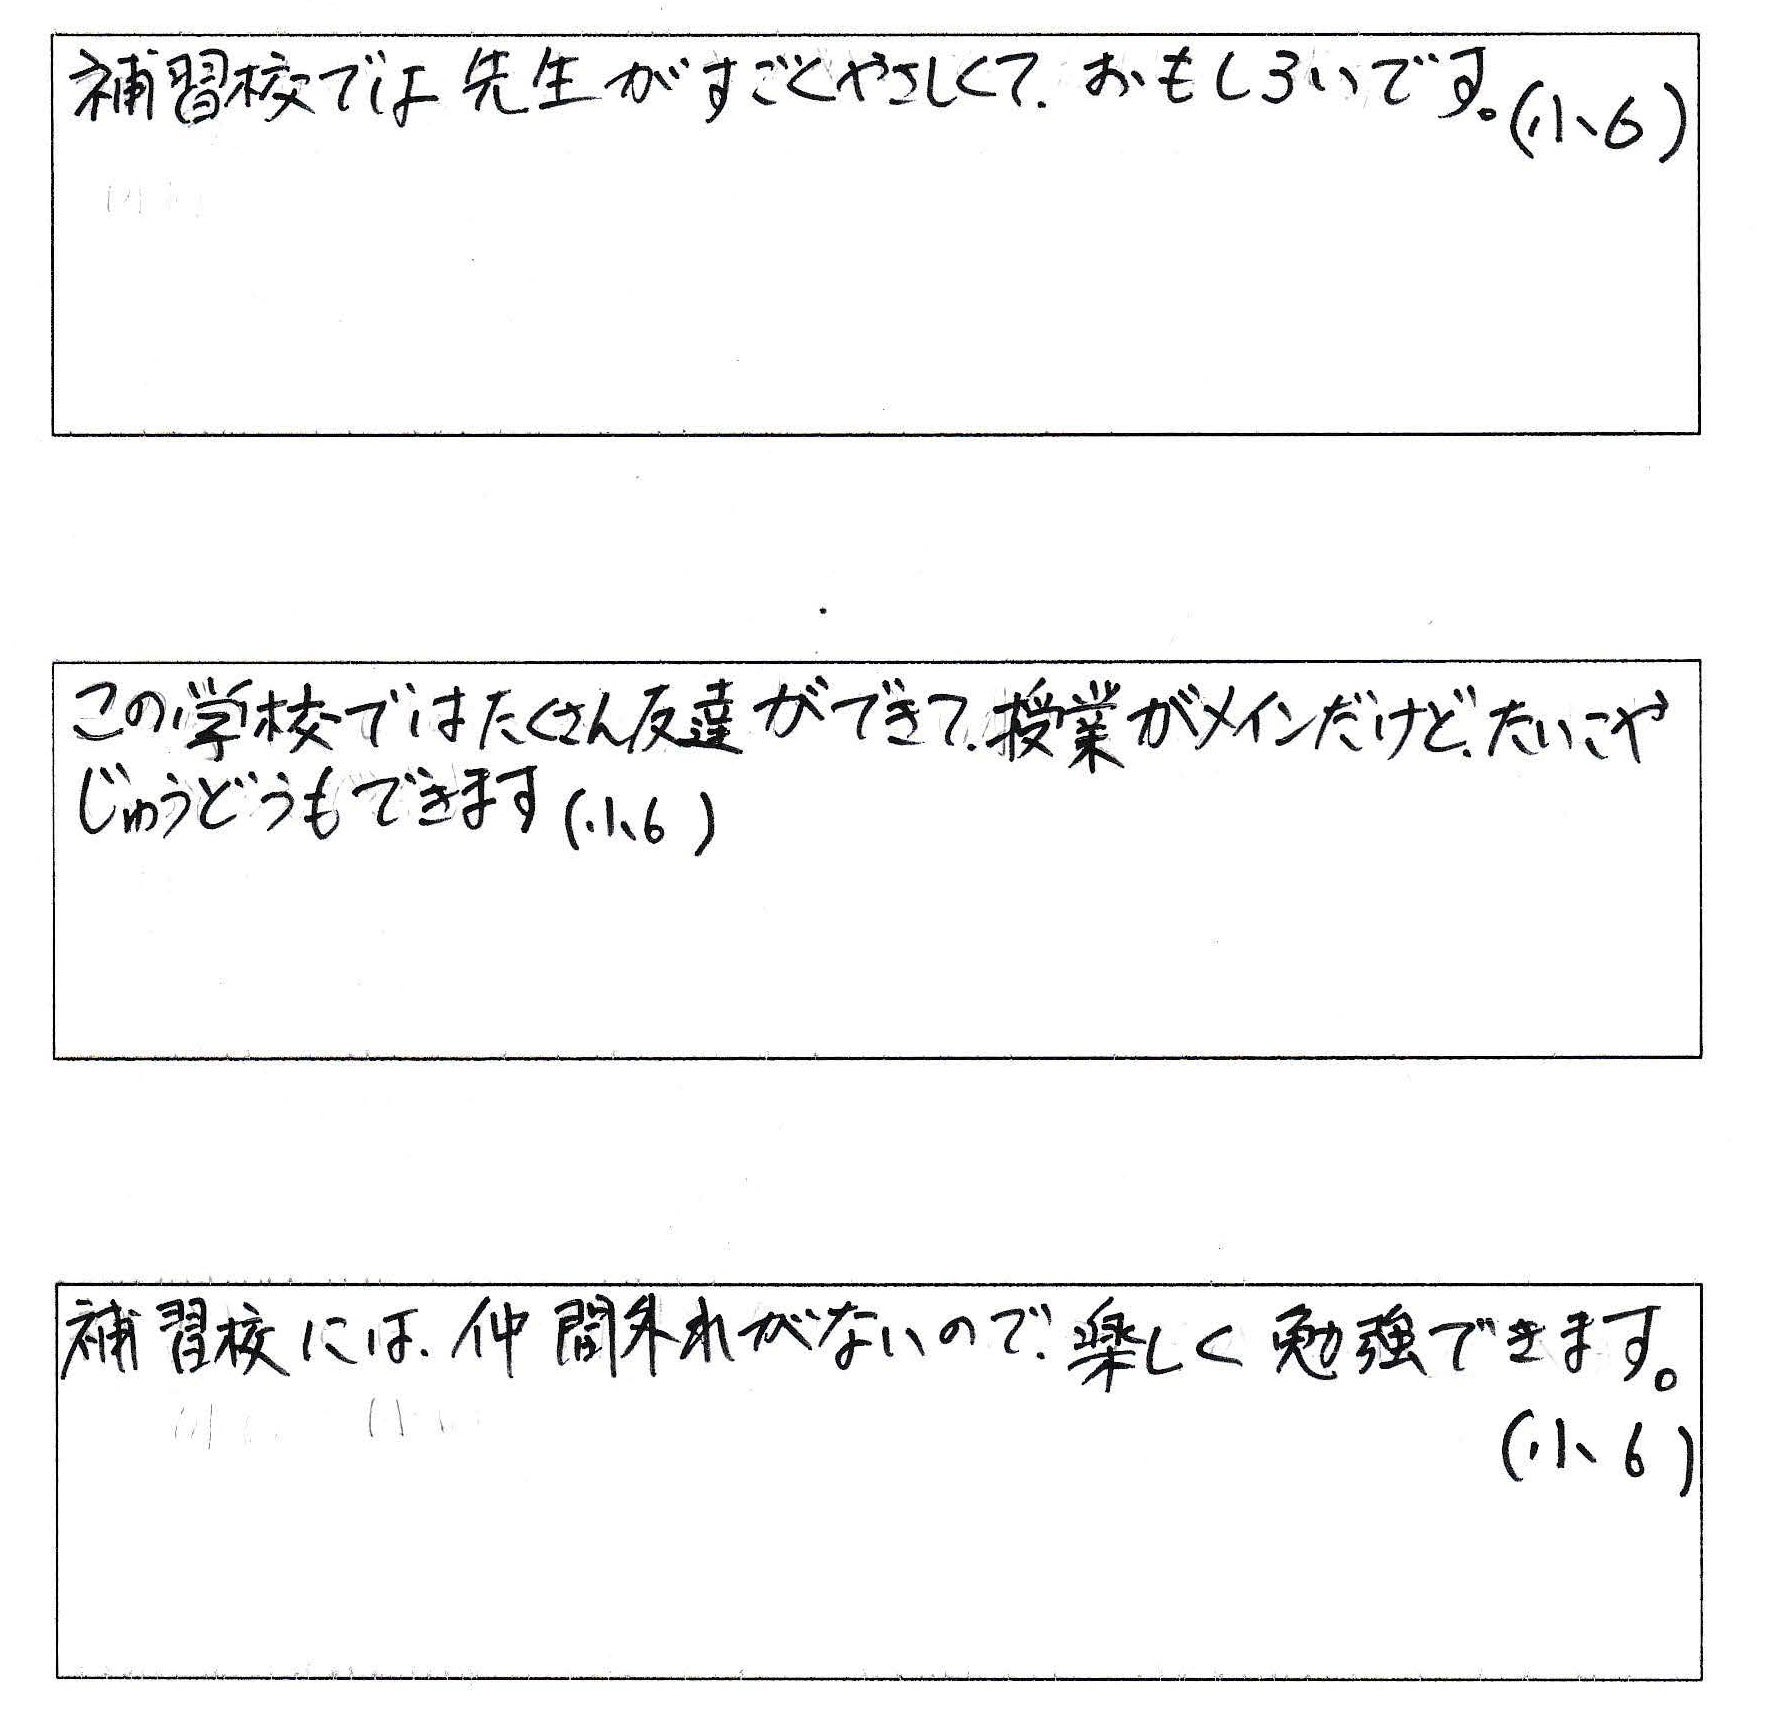 補習校では先生がすごくやさしくて、おもしろいです。(小6)
この学校ではたくさん友達ができて、授業がメインだけど、たいこや
じゅうどうもできます(小6)
補習校には、仲間外れがないので、楽しく勉強できます。
(小6)